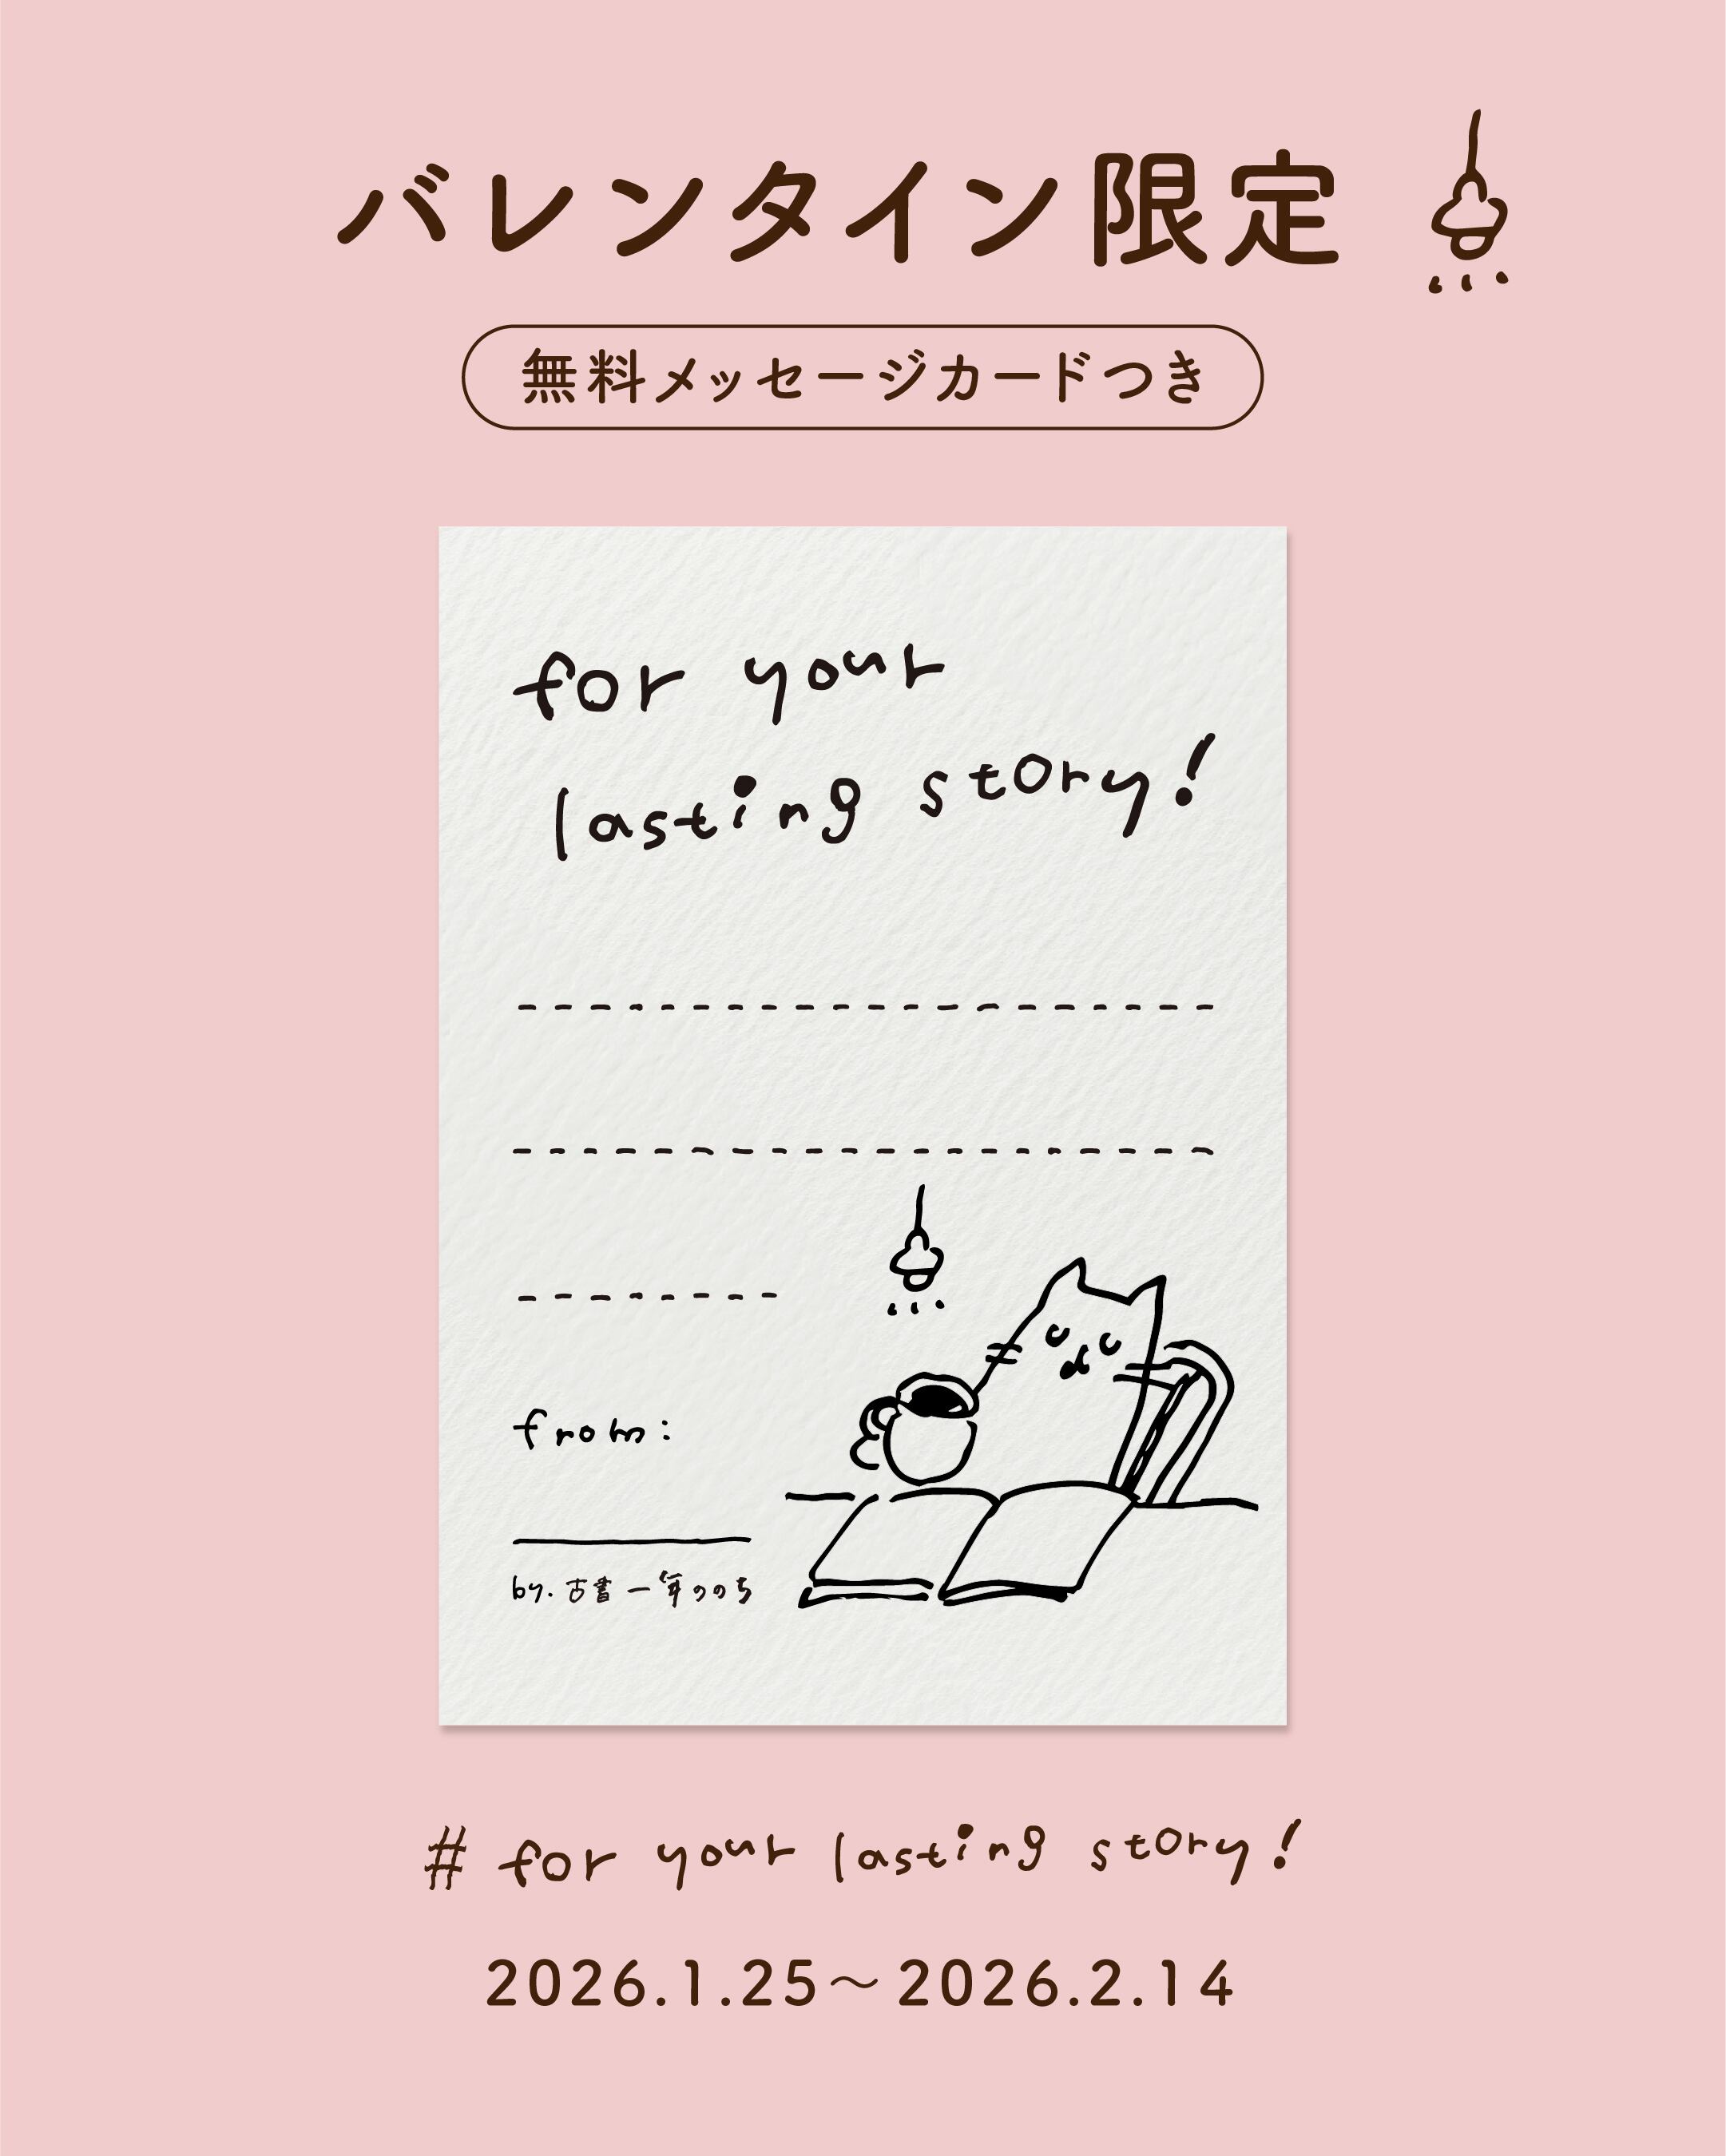 バレンタイン限定
無料メッセージカードつき
for your
lasting story!
from:
by. 古書 一年ののち
# for your lasting story!
2026.1.25～2026.2.14